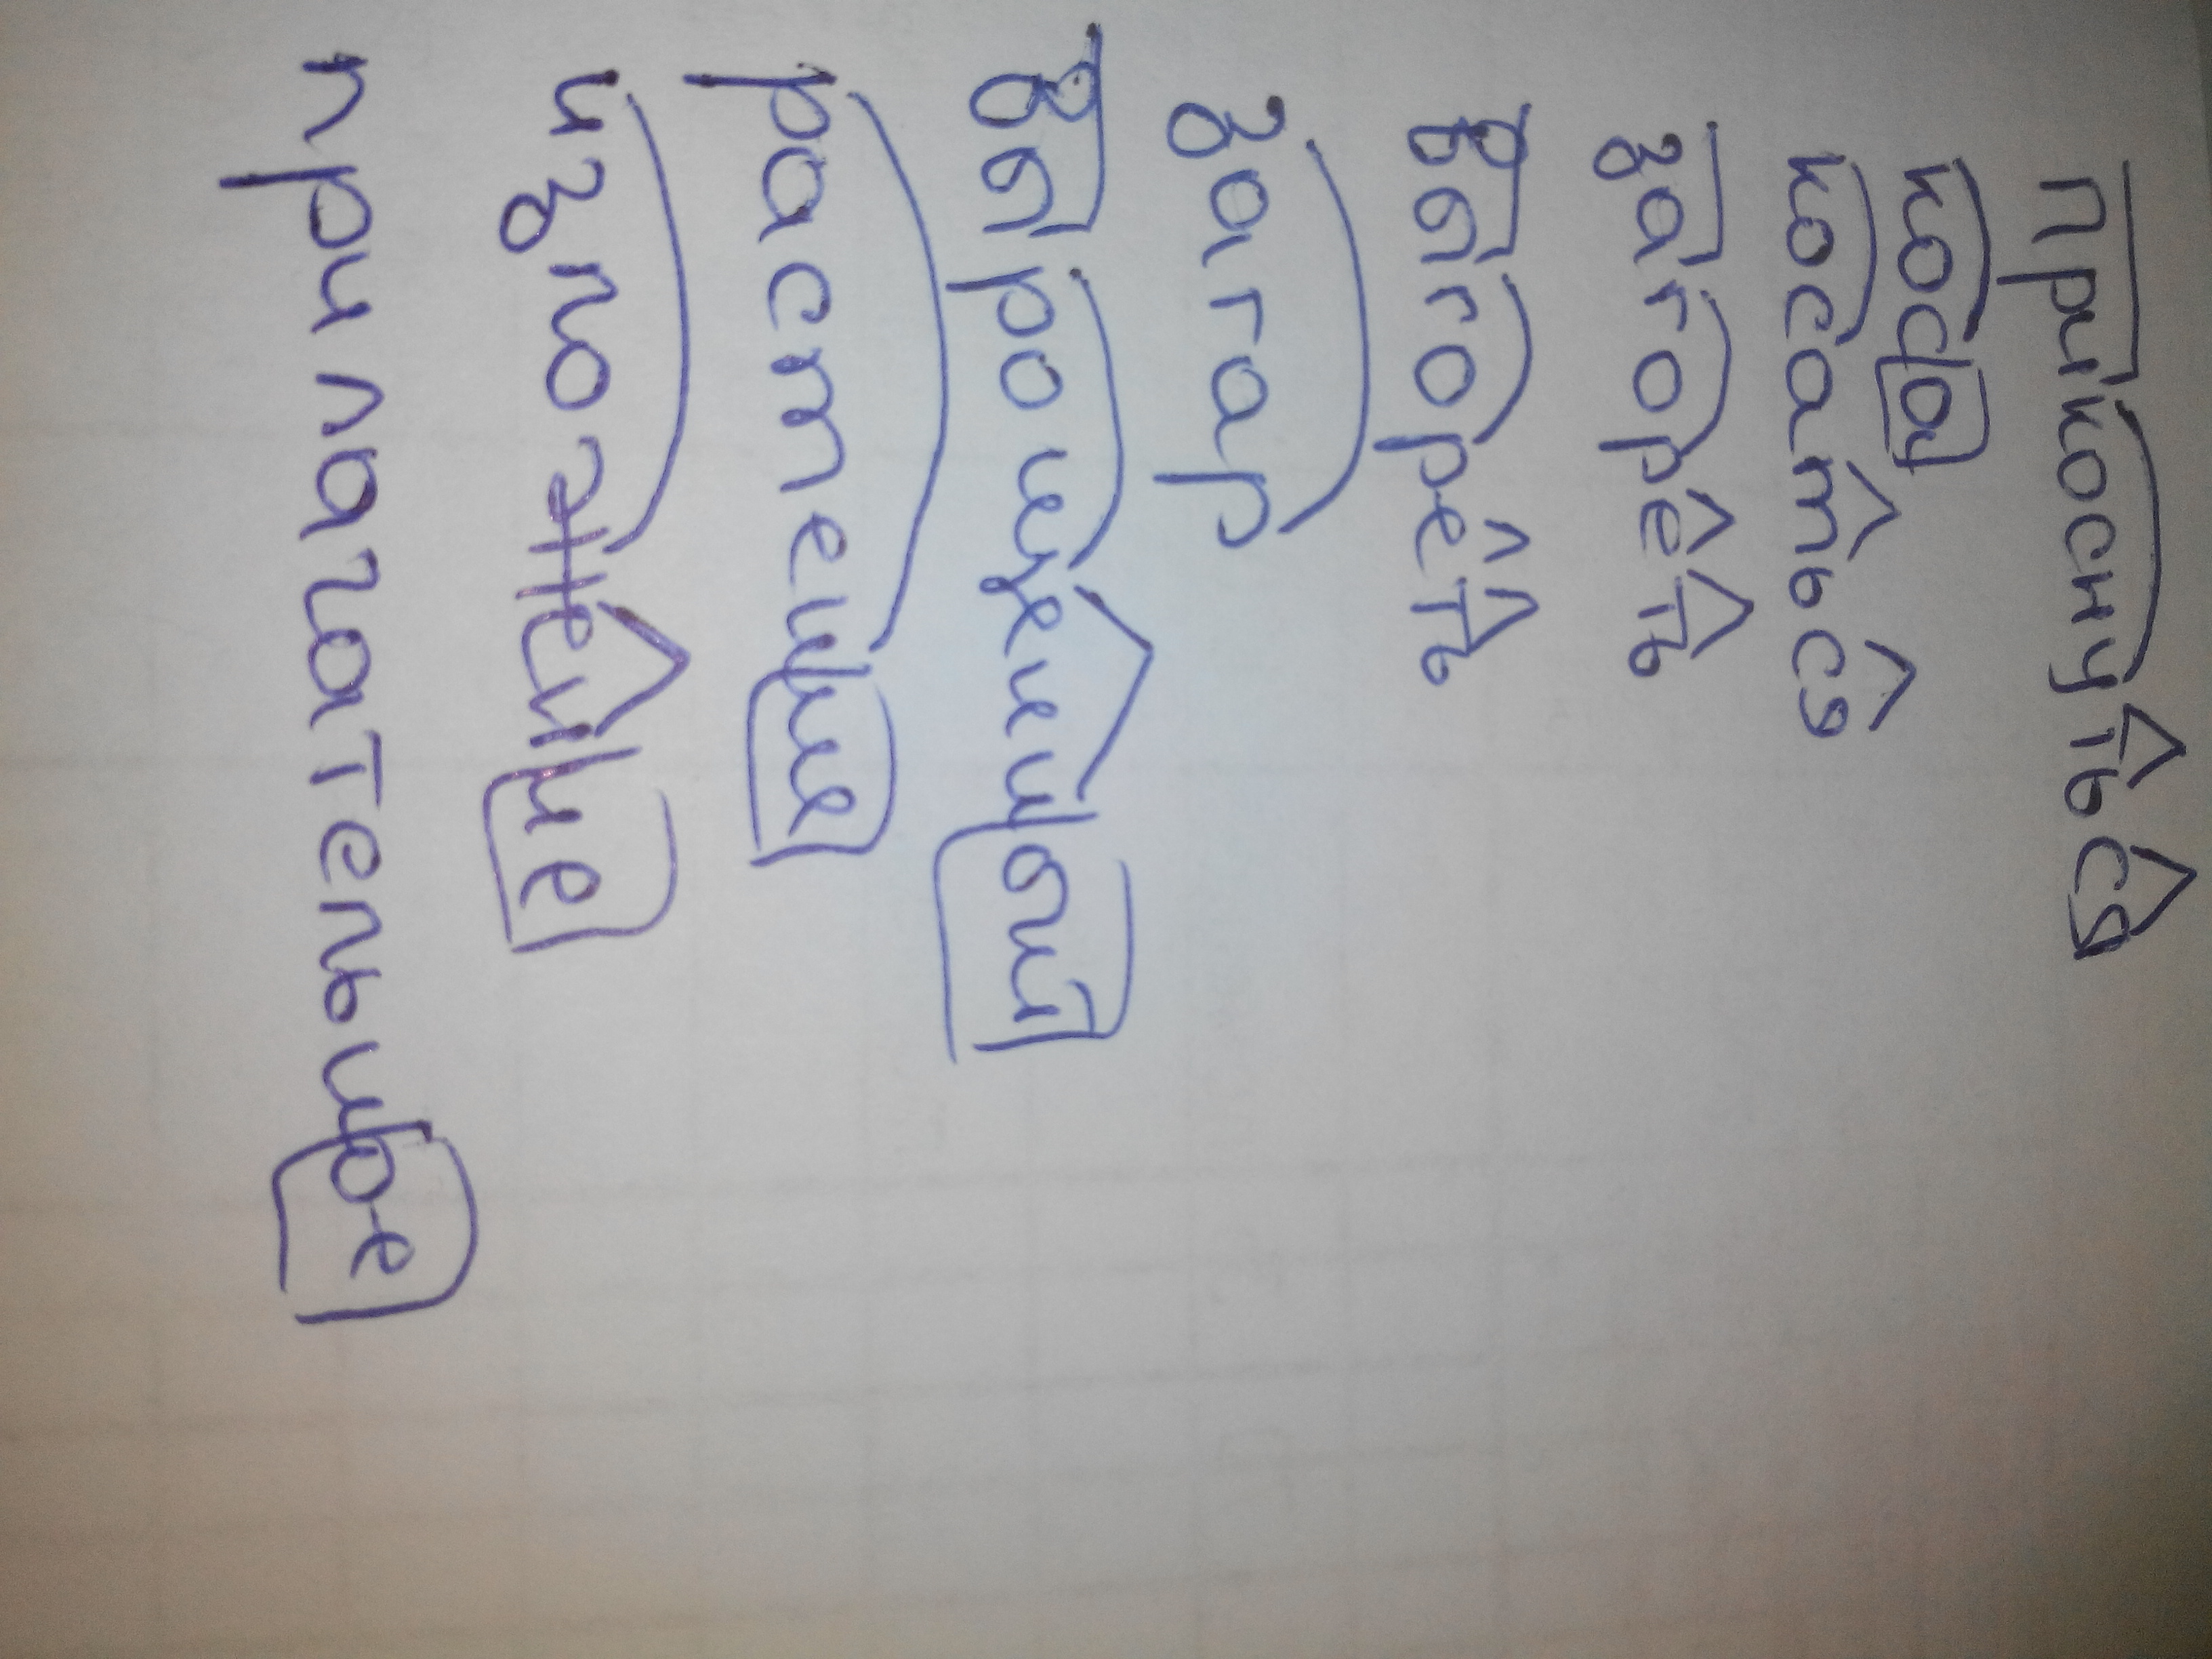 Прикоснуться
коса
косаться
загореть
выгореть
загар
вырощенный
растение
изложение
прилагательное